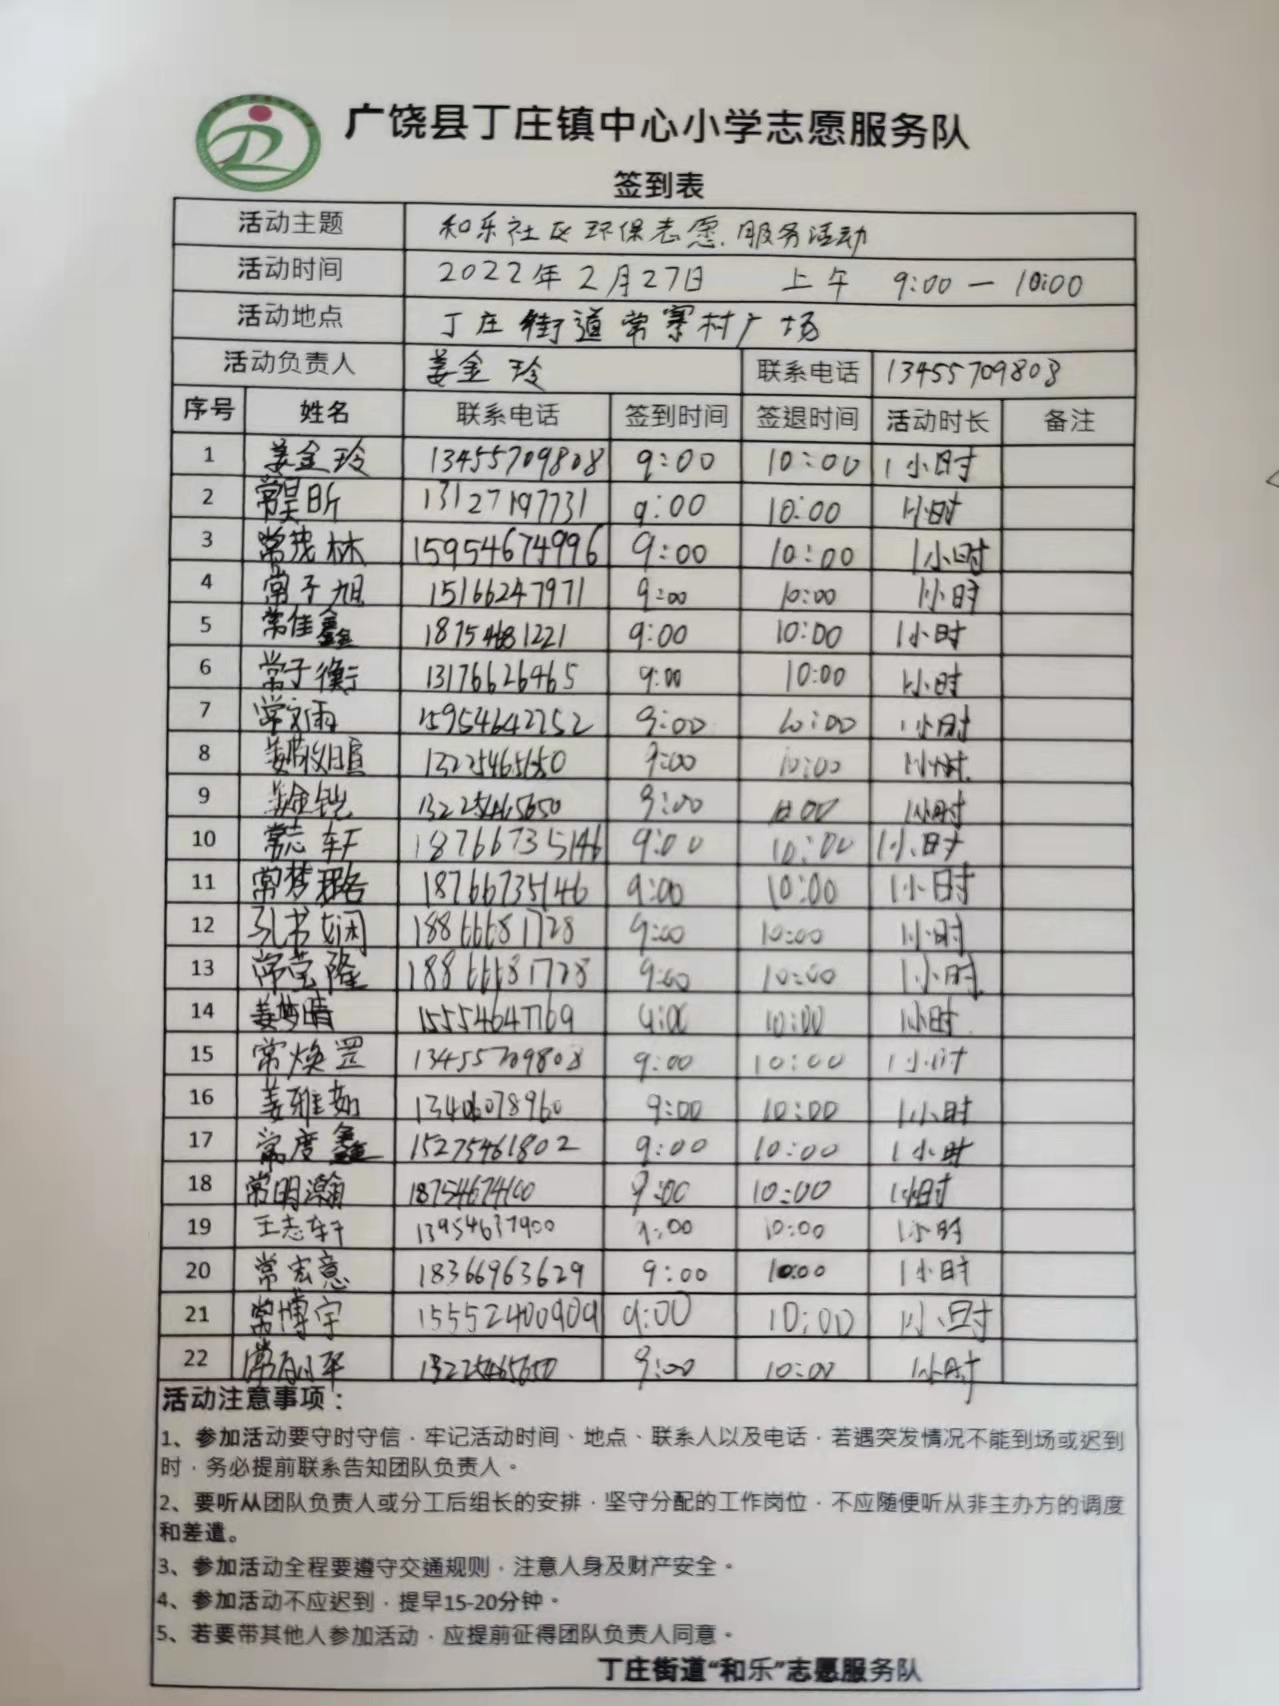 广饶县丁庄镇中心小学志愿服务队
签到表
活动主题 和乐社区环保志愿服务活动
活动时间 2022年2月27日 上午 9:00—10:00
活动地点 丁庄街道常寨村广场
活动负责人 姜金玲 联系电话 13455709808
序号 姓名 联系电话 签到时间 签退时间 活动时长 备注
1 姜金玲 13455709808 9:00 10:00 1小时
2 常昊昕 13127197731 9:00 10:00 1小时
3 常茂林 15954674996 9:00 10:00 1小时
4 常予旭 15166247971 9:00 10:00 1小时
5 常佳鑫 18754681221 9:00 10:00 1小时
6 常于衡 13176626465 9:00 10:00 1小时
7 常文雨 15954642752 9:00 10:00 1小时
8 姜敬暄 13225465650 9:00 10:00 1小时
9 姜金铠 13225465650 9:00 10:00 1小时
10 常志轩 18766735146 9:00 10:00 1小时
11 常梦珞 18766735146 9:00 10:00 1小时
12 孔书娴 18866681728 9:00 10:00 1小时
13 常莹隆 18866681728 9:00 10:00 1小时
14 姜梦晴 15554647769 9:00 10:00 1小时
15 常焕罡 13455709808 9:00 10:00 1小时
16 姜雅茹 13406078960 9:00 10:00 1小时
17 常度鑫 15275461802 9:00 10:00 1小时
18 常明瀚 18754674100 9:00 10:00 1小时
19 王志轩 13954637900 9:00 10:00 1小时
20 常宏意 18366963629 9:00 10:00 1小时
21 常博宇 15552400909 9:00 10:00 1小时
22 13225465650 9:00 10:00 1小时
活动注意事项：
1、参加活动要守时守信，牢记活动时间、地点、联系人以及电话，若遇突发情况不能到场或迟到
时，务必提前联系告知团队负责人。
2、要听从团队负责人或分工后组长的安排，坚守分配的工作岗位，不应随便听从非主办方的调度
和差遣。
3、参加活动全程要遵守交通规则，注意人身及财产安全。
4、参加活动不应迟到，提早15-20分钟。
5、若要带其他人参加活动，应提前征得团队负责人同意。
丁庄街道“和乐”志愿服务队